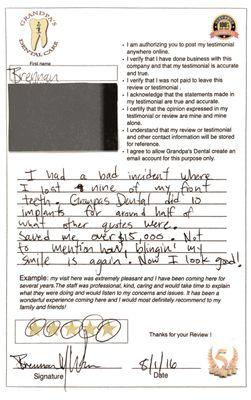 GRANDPA'S
DENTAL CARE
First name
Brennan
• I am authorizing you to post my testimonial
anywhere online.
• I verify that I have done business with this
company and that my testimonial is accurate
and true.
• I verify that I was not paid to leave this
review or testimonial .
• I acknowledge that the statements made in
my testimonial are true and accurate.
• I certify that the opinion expressed in my
testimonial or review are mine and mine
alone.
• I understand that my review or testimonial
and other contact information will be stored
for reference.
• I agree to allow Grandpa's Dental create an
email account for this purpose only.
I had a bad incident where
I lost nine of my front
teeth. Granpas Dental did 10
implants for around half of
what other quotes were.
Saved me over $15,000. Not
to mention how blingin' my
smile is again. Now I look good!
Example: my visit here was extremely pleasant and I have been coming here for
several years.The staff was professional, kind, caring and would take time to explain
what they were doing and would listen to my concerns and issues. It has been a
wonderful experience coming here and I would most definitely recommend to my
family and friends!
Thanks for your Review !
Brennan
8/1/16
Signature
Date
5